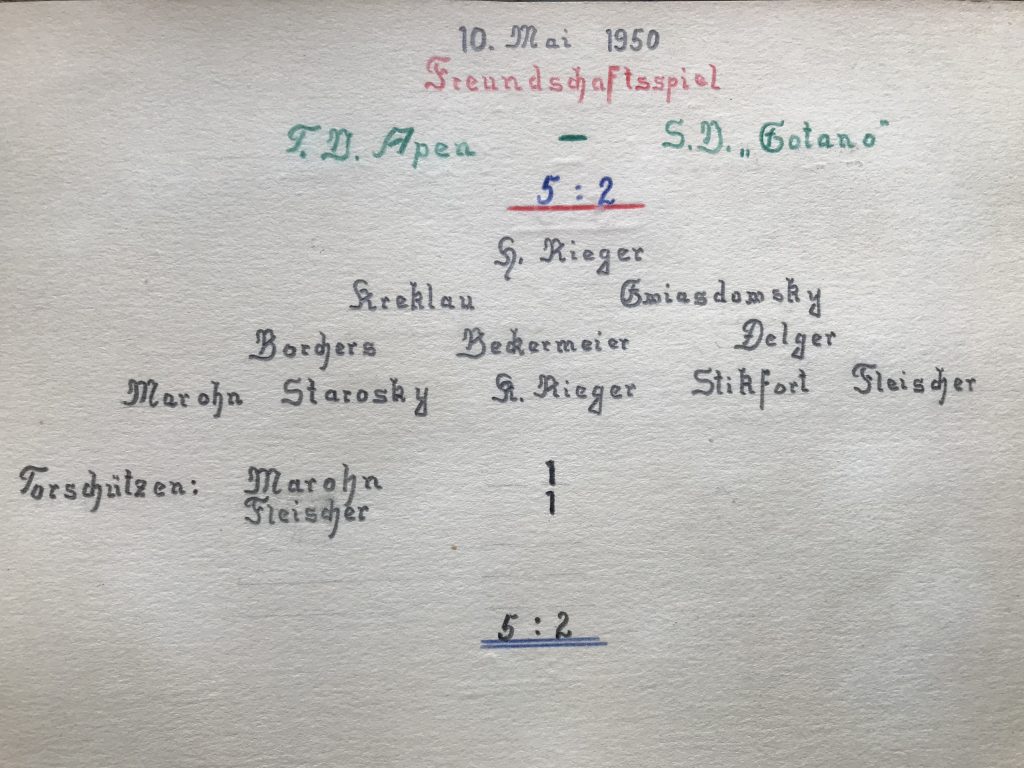 10. Mai 1950
Freundschaftsspiel
T.V. Apen - S.V. „Gotano"
5 : 2
H. Rieger
Kreklau Gwiasdowsky
Borchers Beckermeier Delger
Marohn Starosky K. Rieger Stikfort Fleischer
Torschützen: Marohn 1
Fleischer 1
5 : 2